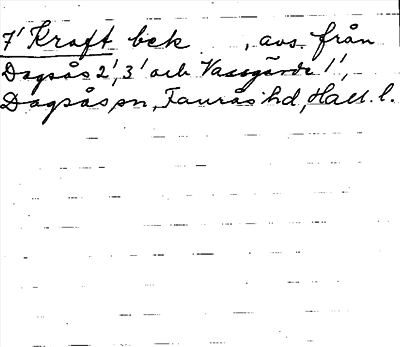 7' Kraft bek , avs. från
Dagsås 2', 3' och Vassgärde 1',
Dagsås sn, Faurås hd, Hall. l.